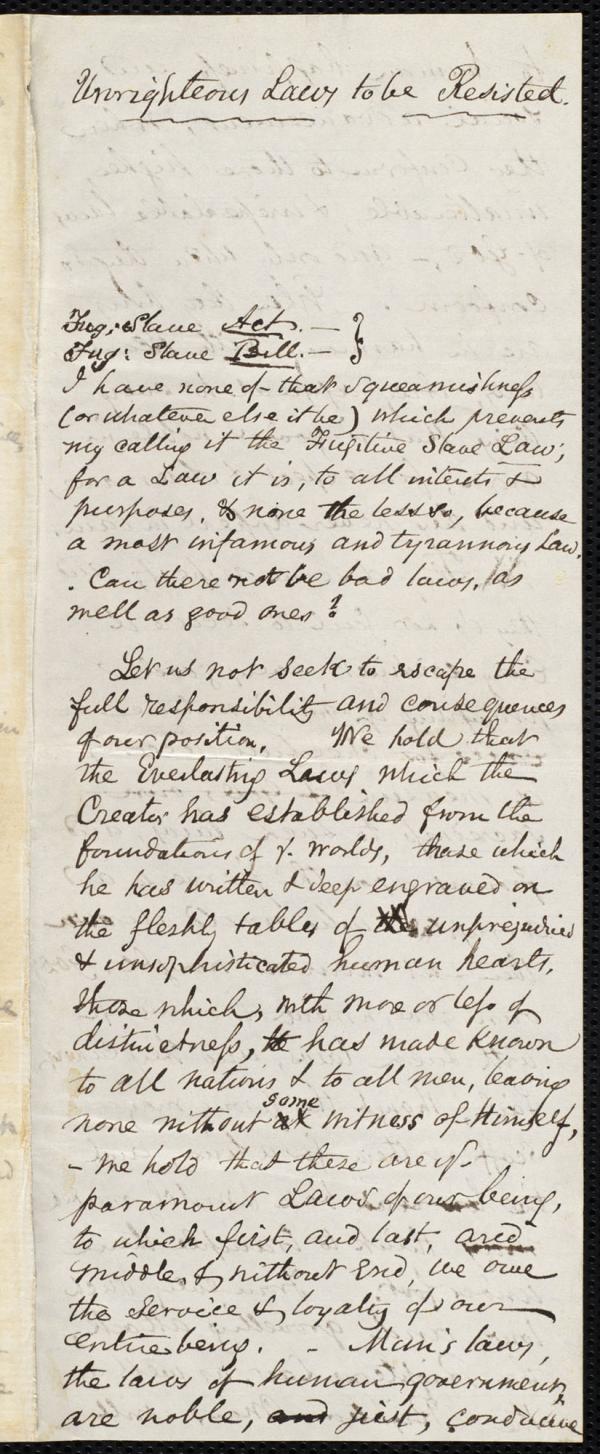 Unrighteous Laws to be Resisted.
Fug: Slave Act. — }
Fug: Slave Bill. — }
I have none of that squeamishness
(or whatever else it be) which prevents
my calling it the Fugitive Slave Law;
for a Law it is, to all intents &
purposes, & none the less so, because
a most infamous and tyrannous Law.
. Can there not be bad laws, as
well as good ones?
Let us not seek to escape the
full responsibility and consequences
of our position. We hold that
the Everlasting Laws which the
Creator has established from the
foundations of y. worlds, those which
he has written & deep engraved on
the fleshly tables of the unprejudiced
& unsophisticated human hearts,
those which, with more or less of
distinctness, He has made known
to all nations & to all men, leaving
none without some witness of Himself,
– we hold that these are ye.
paramount Laws of our being,
to which first, and last, and
middle, & without End, we owe
the Service & loyalty of our
entire being. – Man's laws,
the laws of human government,
are noble, and just, conducive